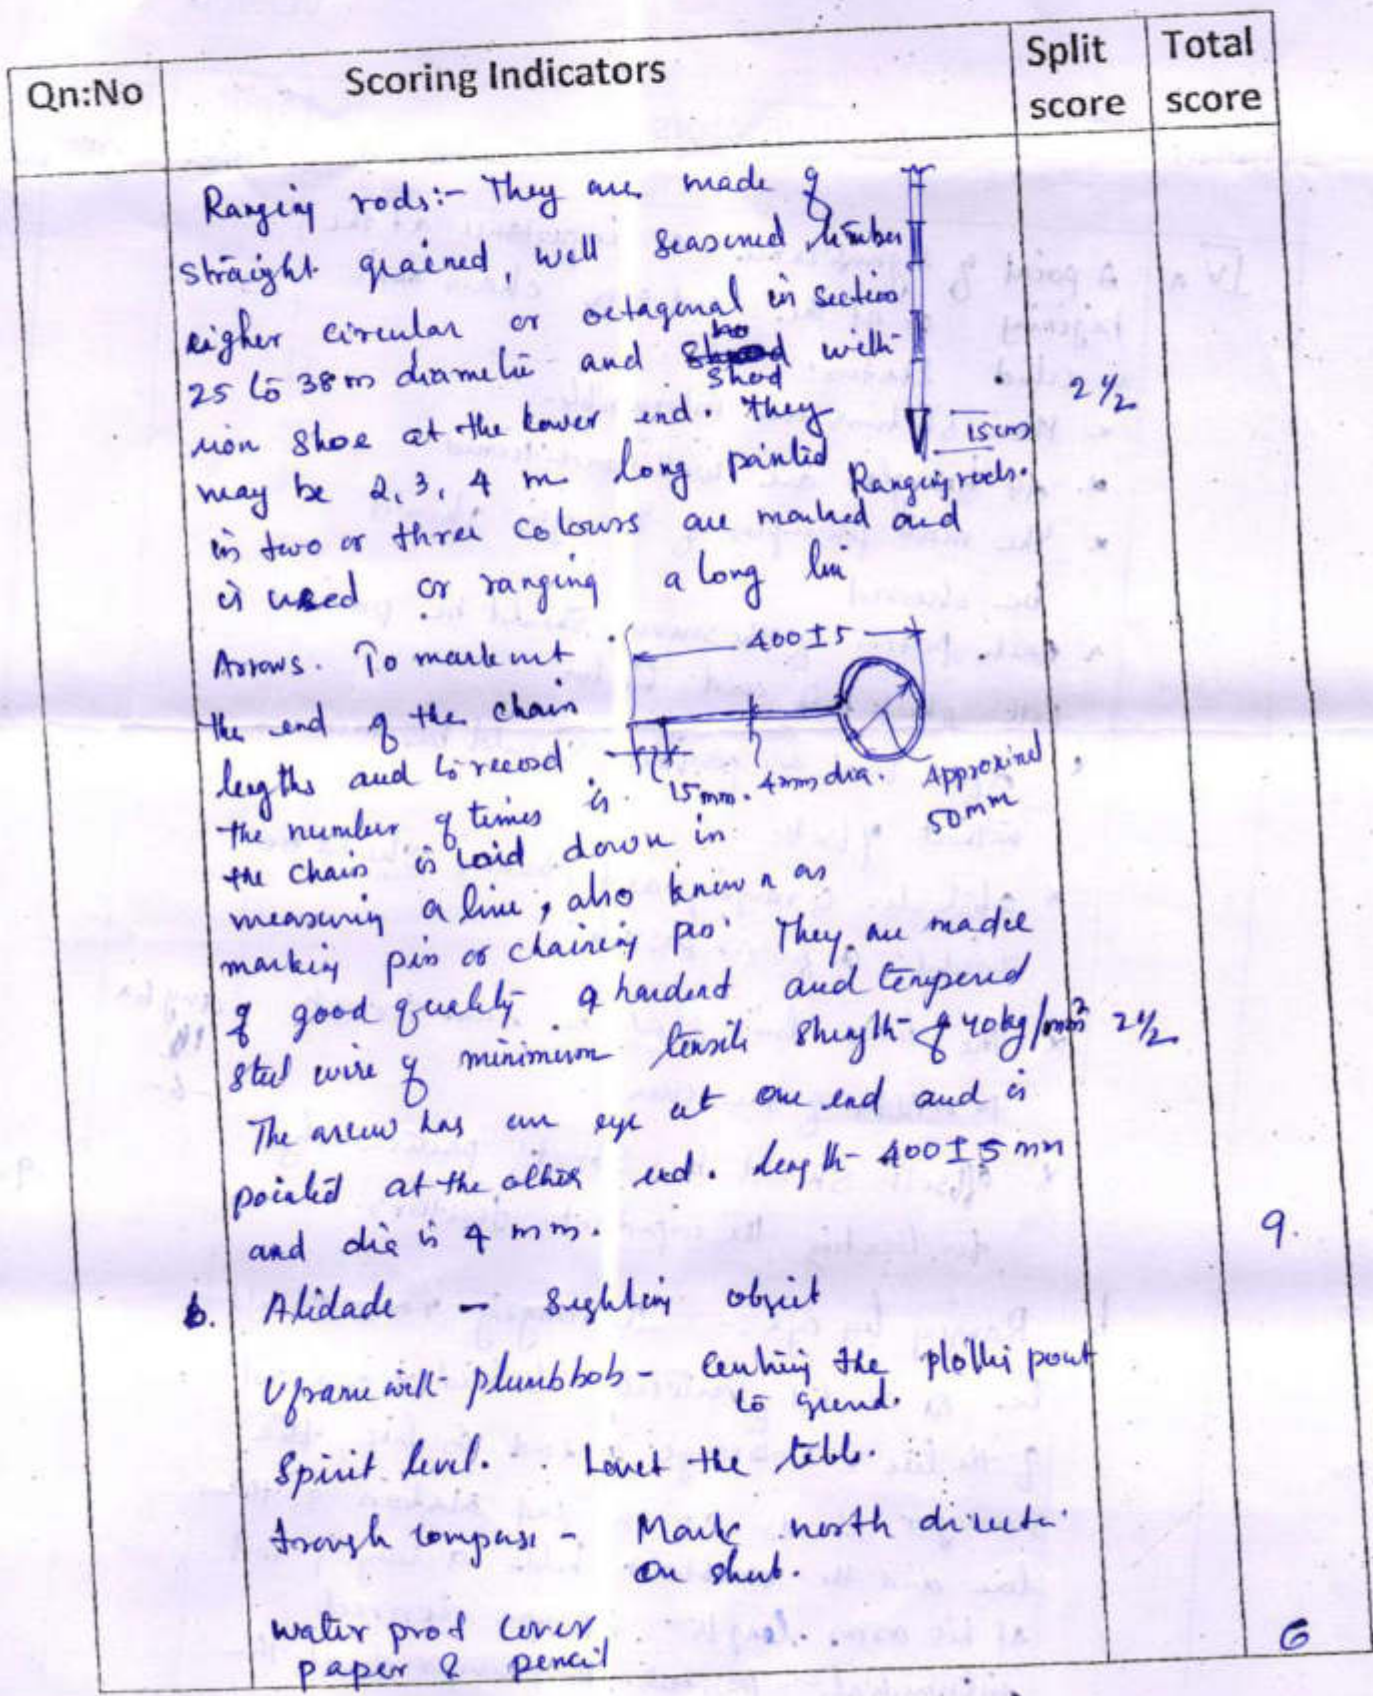 Qn:No Scoring Indicators Split score Total score
Ranging rods:- They are made of
straight grained, well seasoned, timber
eigher circular or octagonal in section
25 to 38 m diameter and no shod with
iron shoe at the lower end. They
15 cms
2 ½
may be 2, 3, 4 m long painted
Ranging rods.
in two or three colours are marked and
is used or ranging a long line
Arrows. To mark out
400 ± 5
the end of the chain
lengths and to record
the number of times is
15mm. 4mm dia. Approximal
50mm
the chain is laid down in
measuring a line, also known as
marking pin or chaining pin They are made
of good quality of hardend and tempered
steel wire of minimum tensile strength of 40kg/mm² 2½
The arrow has an eye at one end and is
pointed at the other end. length - 400 ± 5 mm
and dia is 4 mm.
9.
b. Alidade - Sighting object
U frame with plumbbob - Centring the plotting point
to ground.
Spirit level. Level the table.
trough compass - Mark north direction
on sheet.
water prof cover
paper & pencil
6